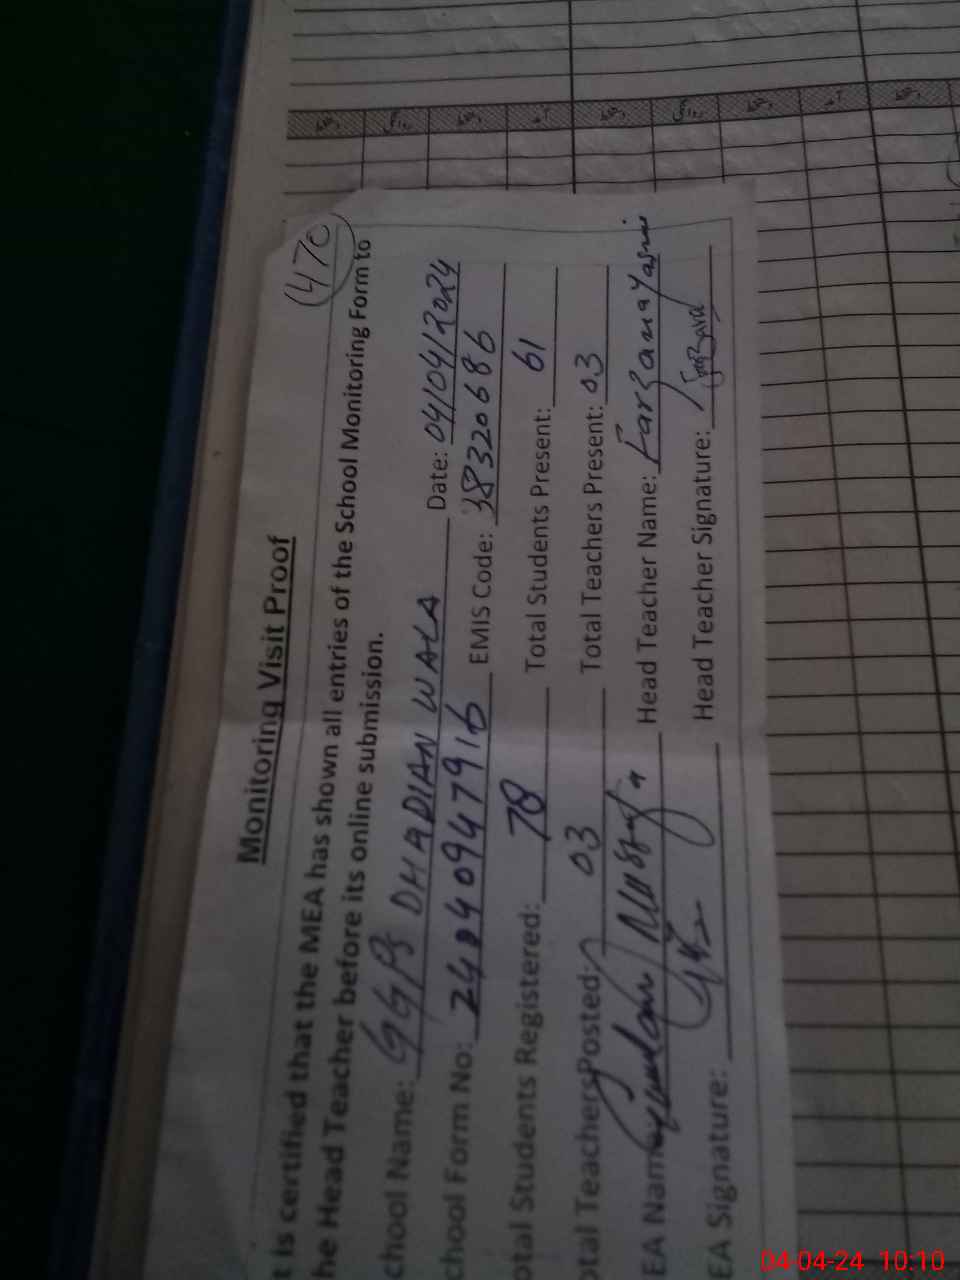 (470)
Monitoring Visit Proof
t is certified that the MEA has shown all entries of the School Monitoring Form to
he Head Teacher before its online submission.
chool Name: GGPS DHADIAN WALA Date: 04/04/2024
chool Form No: 2404094 7916 EMIS Code: 38320686
otal Students Registered: 78 Total Students Present: 61
otal Teachers Posted: 03 Total Teachers Present: 03
EA Name: Ghulam Mustafa Head Teacher Name: Farzana Yasmin
EA Signature: Head Teacher Signature: Farzana
04-04-24 10:10